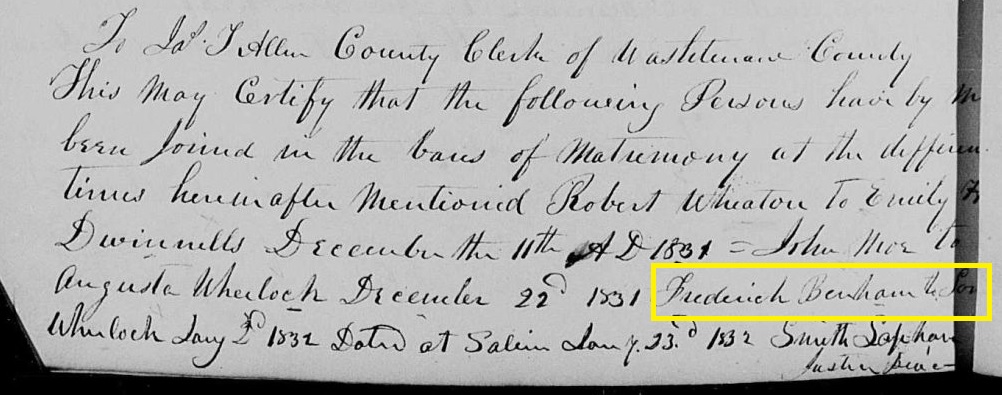 To Jas. T Allen County Clerk of Washtenaw County
This May Certify that the following Persons have by m
been Joined in the bans of Matrimony at the differen
times herein after Mentioned Robert Wheaton To Emily
Dwinnells December the 11th AD 1831 = John Moe to
Augusta Wheelock December 22d 1831 Frederick Benham to
Wheelock Jany 2d 1832 Dated at Salem Jany. 23.d 1832 Smith Lapham
Justice